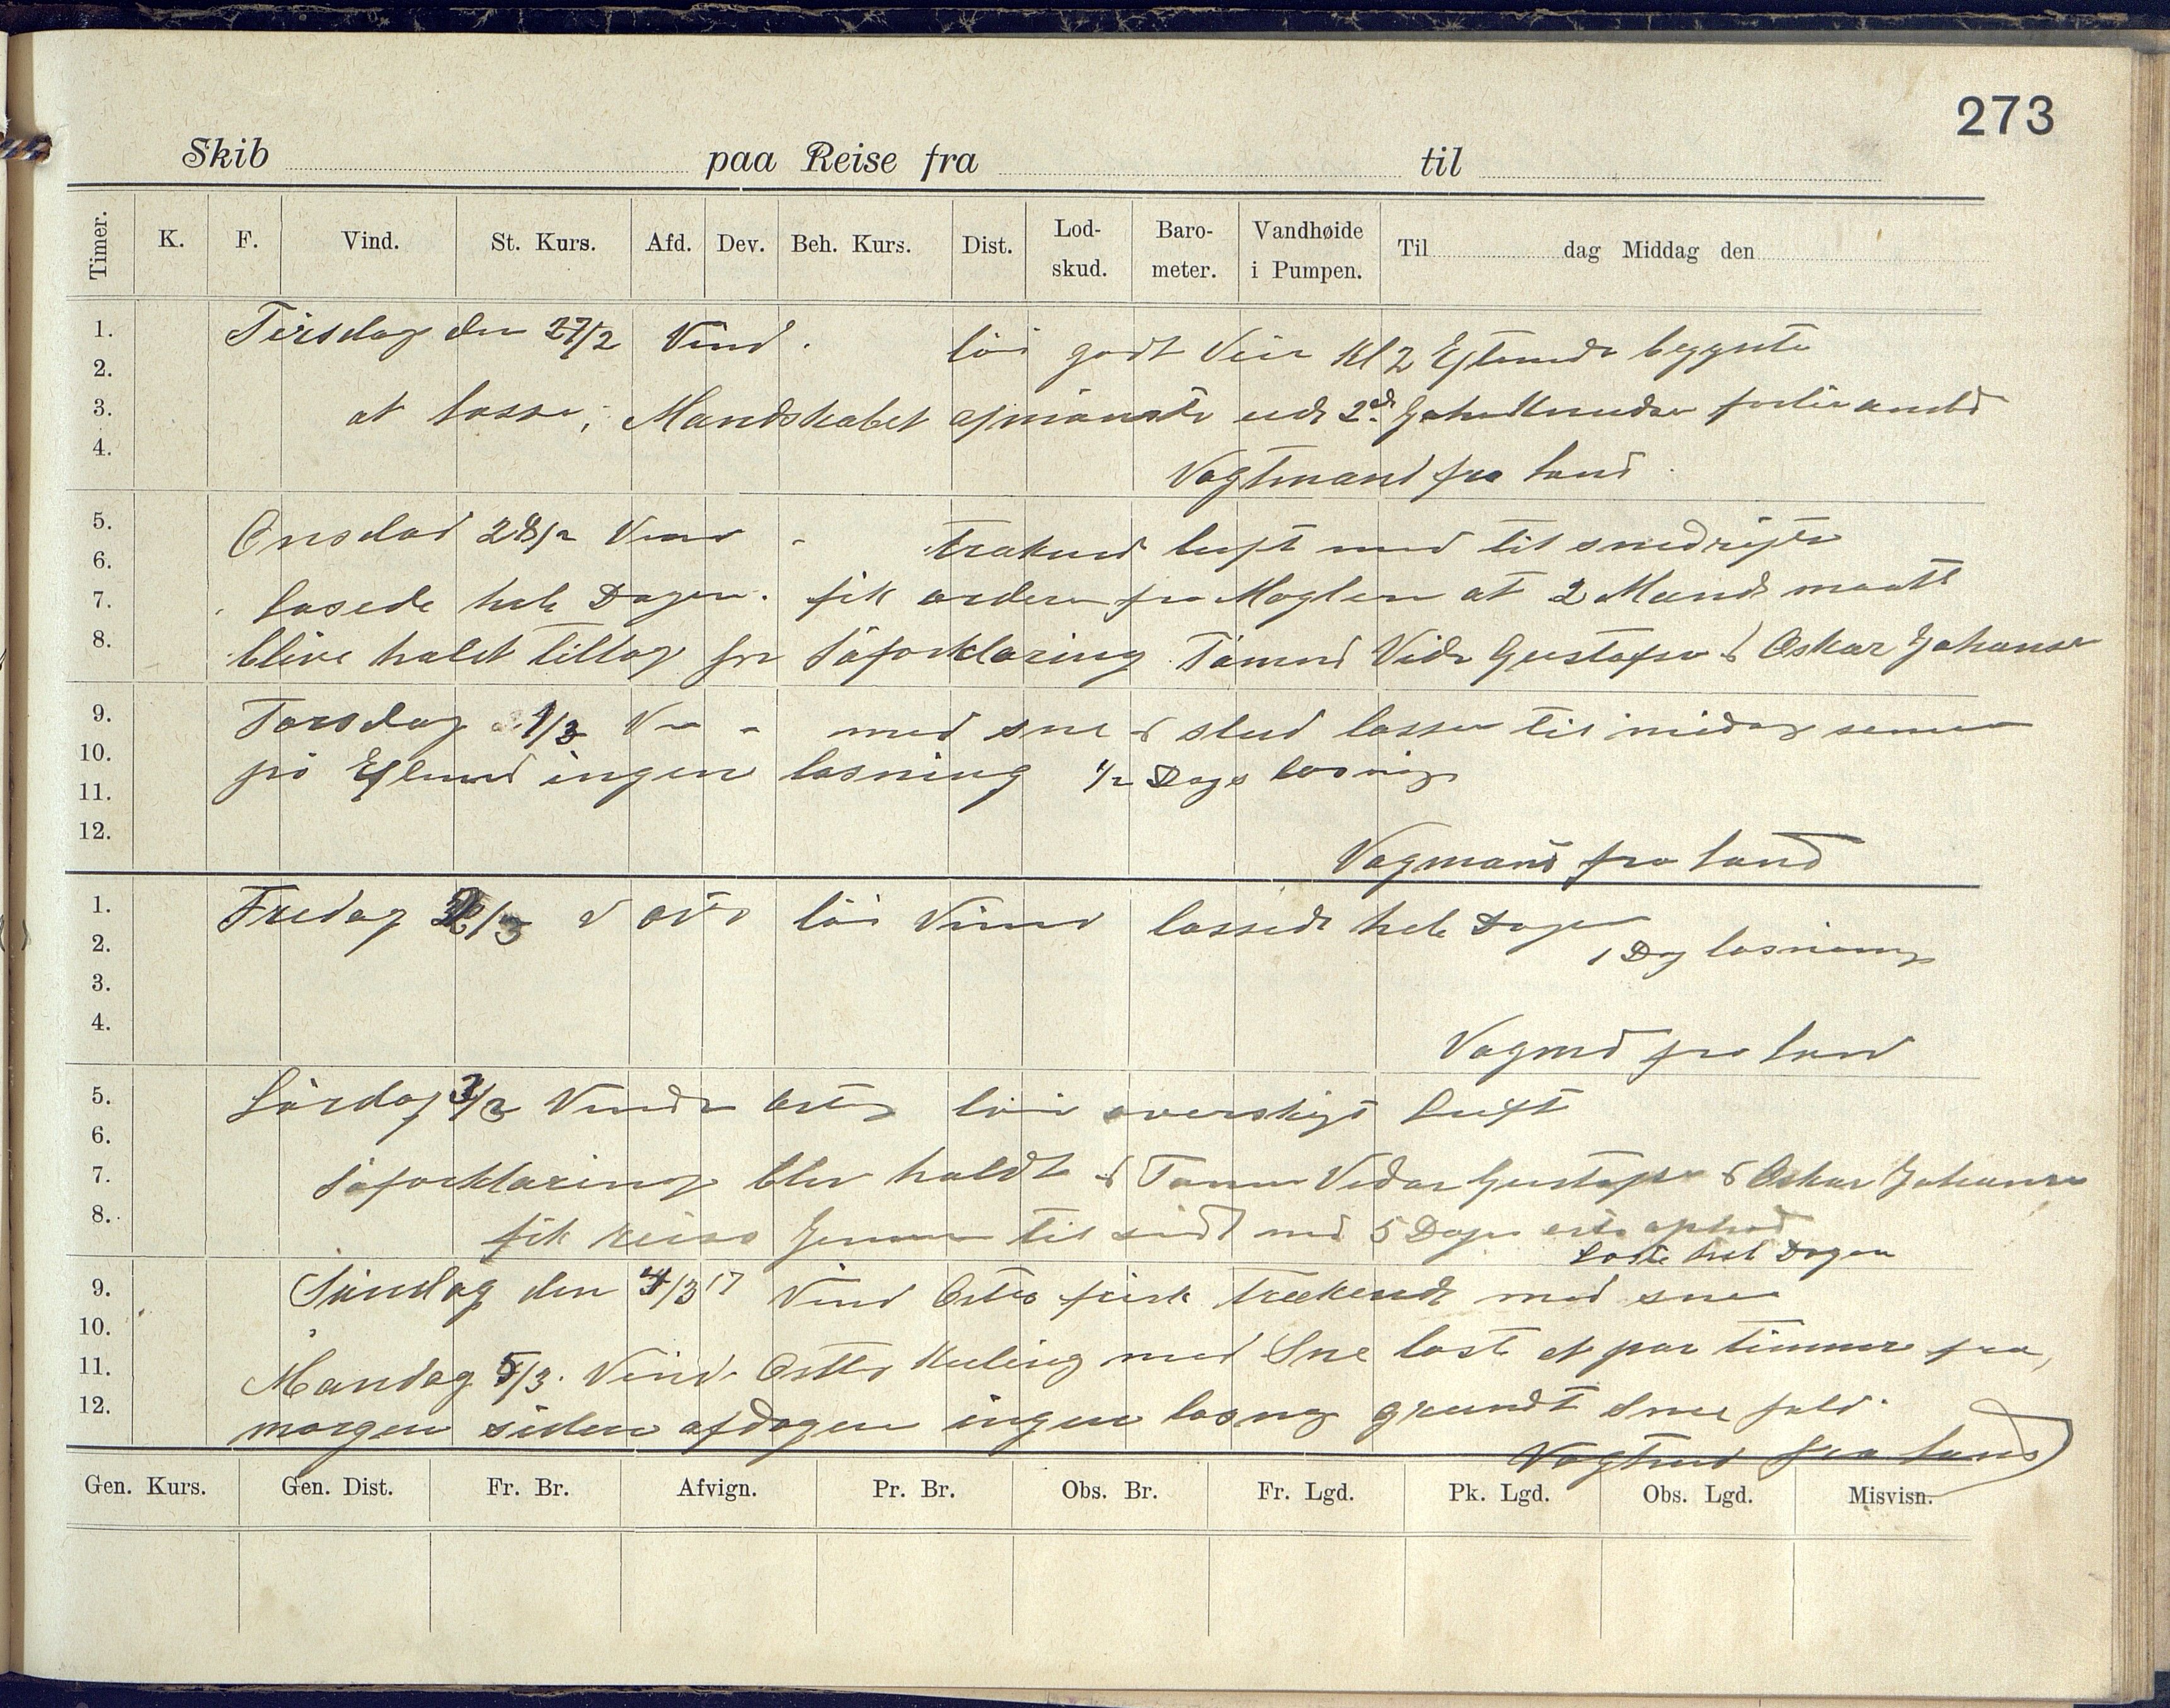 273
Skib paa Reise fra til
Timer. K. F. Vind. St. Kurs. Afd. Dev. Beh. Kurs. Dist. Lod-skud. Baro-meter. Vandhøide i Pumpen. Til dag Middag den
1. Tirsdag den 27/2 Vind. löi godt Veir Kl 2 begynte
2.
3. at losse; Mandskabet afmönste
4. Vagtmand fra land.
5. Onsdad 28/2 Vind - luft med til
6.
7. losede hele Dagen. fik orderen fra Mægleren at 2 Mand maatte
8. blive holdt tilbag for Söforklaring Tömmd Vidr Gustafsen & Oskar Johansen
9. Torsdag 1/3 V - med sne & slud losse til midag
10. på ingen losning 1/2 Dags losning
11.
12. Vagmand fra land
1. Fredag 2/3 löi Vind lossede hele Dagen
2. 1 Dag losning
3.
4. Vagmd fra land
5. Lördag 3/3 Vinden löi overskyt Luft
6.
7. Söforklaring blev holdt & Tömm Vidar Gustafsen & Oskar Johansen
8. fik reise til med 5 Dages
Loste hele Dagen
9. Söndag den 4/3 17 Vind Ostlig frisk med sne
10.
11. Mandag 5/3. Vind. Ostlig Kuling med Sne loste et par timmer fra
12. morgen siden af dagen ingen losng grundt Snee fald.
Vagtmd fra land
Gen. Kurs. Gen. Dist. Fr. Br. Afvign. Pr. Br. Obs. Br. Fr. Lgd. Pk. Lgd. Obs. Lgd. Misvisn.